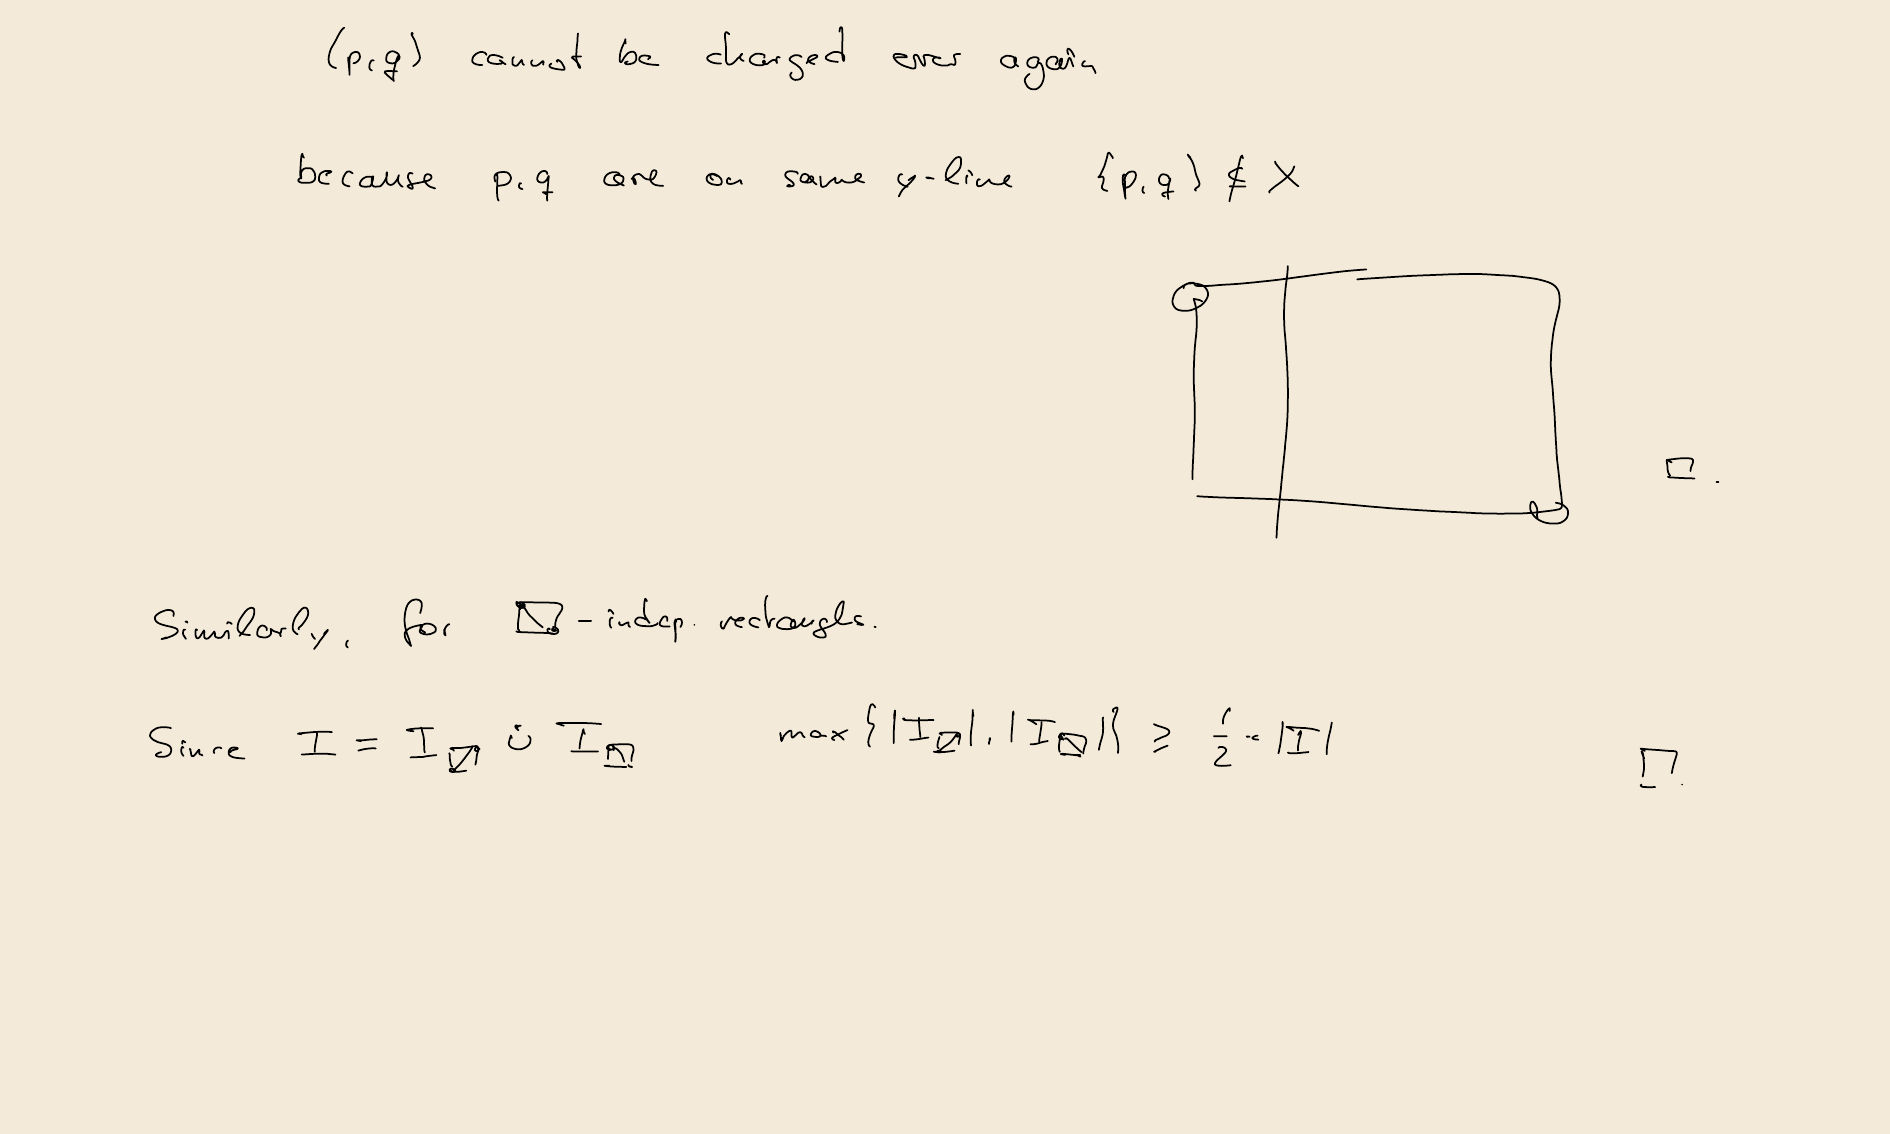 (p,q) cannot be charged ever again
because p,q are on same y-line {p,q} ⊄ X
□.
Similarly, for ◩-indep. rectangles.
Since I = I_⧄ ⊍ I_⧅ max{|I_⧄|, |I_⧅|} ≥ 1/2 · |I|
□.